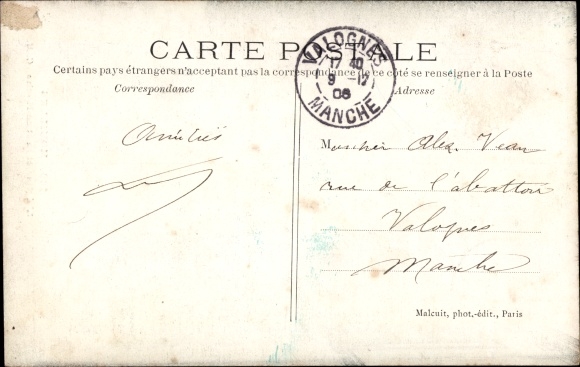 CARTE POSTALE
Certains pays étrangers n'acceptant pas la correspondance de ce côté se renseigner à la Poste
Correspondance
Adresse
VALOGNES
17 40
9 - 12
06
MANCHE
Amitiés
Monsieur Alex. Veau
rue de l'abattoir
Valognes
Manche
Malcuit, phot.-édit., Paris